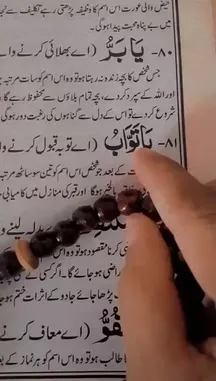 فیض والی عورت اس اسم کا وظیفہ پڑھتی رہے تکلیف سے نجا
میں بے پناہ محبت پیدا ہو گی۔
۸۰- یَا بَرُّ (اے بھلائی کرنے وا
جس شخص کا بچہ زندہ نہ رہتا ہو وہ اس اسم کو سات مرتبہ
اور اللہ کے سپرد کر دے، بچہ تمام بلاؤں سے محفوظ رہے گا
شروع کر دے تو اس کے دل سے گناہوں کی رغبت دور ہو گی
۸۱- یَا تَوَّابُ (اے توبہ قبول کرنے وا
کے بعد جو شخص اس اسم کو تین سو ساٹھ مرتبہ
ہو گا اور قبر کی منازل میں کامیابی
بدلہ لینے وا
کرنا مقصود ہو وہ اس
راضی ہو جائے گا۔ اگر کسی
پڑھا جائے جادو کے اثرات ختم ہو جا
(اے معاف کرنے
طالب ہو تو وہ اس اسم کو ہر نماز کے بعد